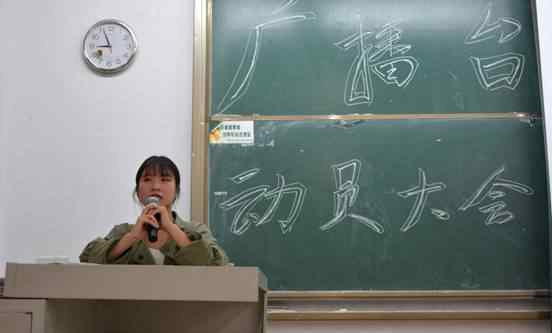 广播台
动员大会